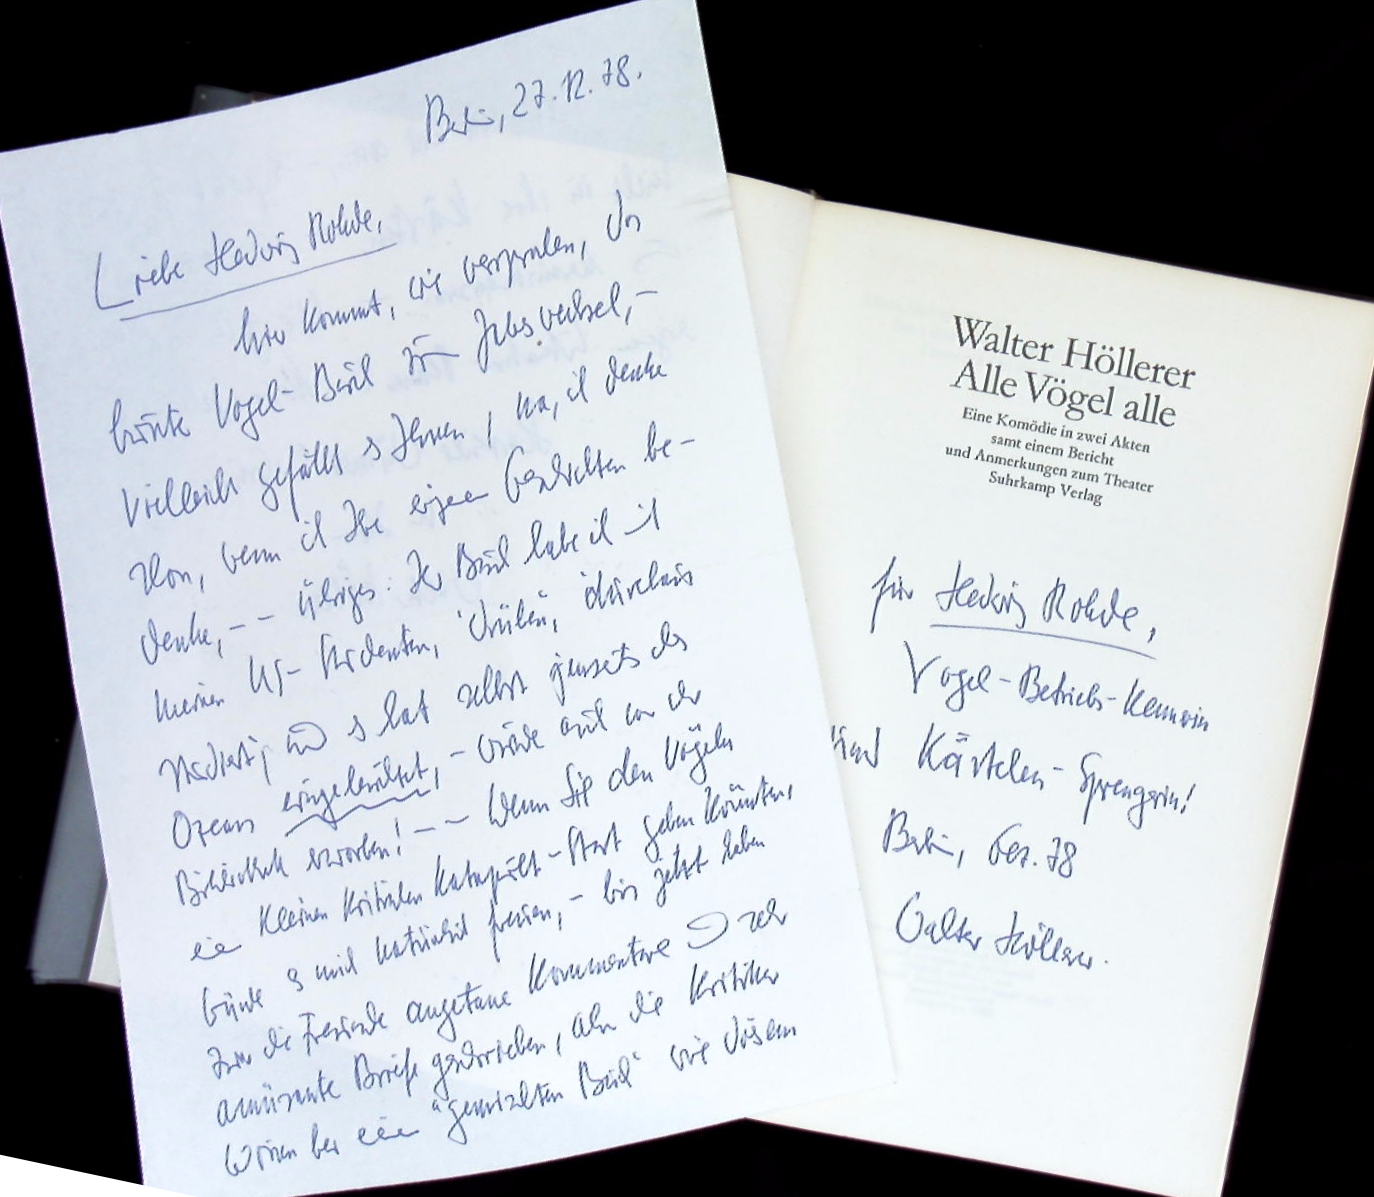 Berlin, 27.12.78.
Liebe Hedwig Rohde,
hier kommt, wie versprochen, das
bunte Vogel-Buch zum Jahreswechsel,-
vielleicht gefällt's Ihnen, na, ich denke
schon, wenn ich Ihre eigenen Geschichten be-
denke, -- Übrigens: Das Buch habe ich mit
meinen US-Studenten, 'drüben', durchaus
und es hat selbst jenseits des
Ozeans eingeleuchtet, - wurde auch von der
Bibliothek erworben! -- Wenn Sie den Vögeln
einen kleinen kritischen Katapult-Start geben könnten,
würde es mich natürlich freuen, - bis jetzt haben
zwar die Freunde angetane Kommentare und sehr
amüsante Briefe geschrieben, aber die Kritiker
wissen bei einem "gemischten Buch" wie diesem
Walter Höllerer
Alle Vögel alle
Eine Komödie in zwei Akten
samt einem Bericht
und Anmerkungen zum Theater
Suhrkamp Verlag
für Hedwig Rohde,
Vogel-Betriebs-Kennerin
und Kästchen-Sprengerin!
Berlin, Dez. 78
Walter Höllerer.